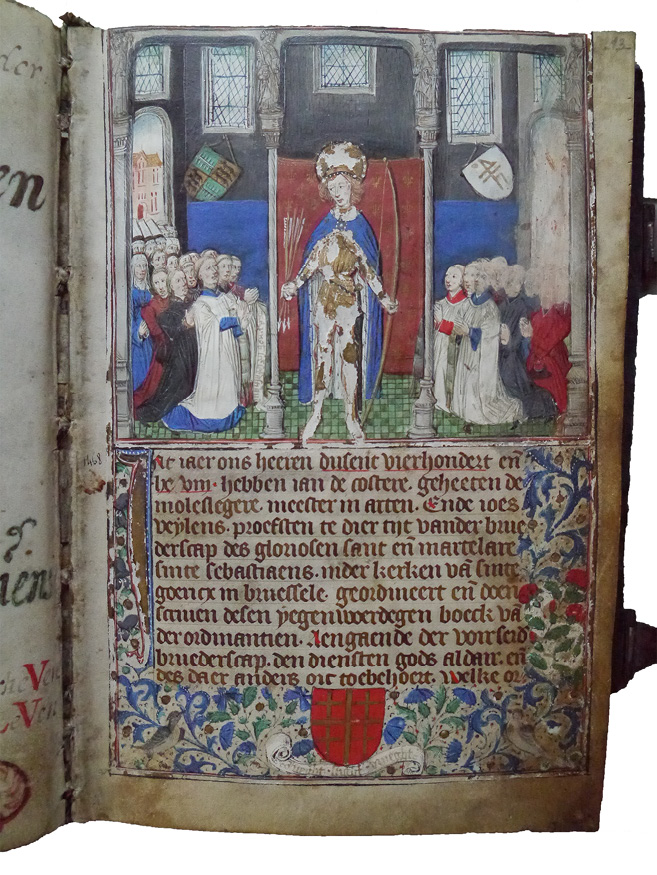 der.
en
iens
1468
Int iaer ons heeren dusent vierhondert eñ
lxviij· hebben ian de costere· geheeten de
moleslegere· meester in arten· Ende ioes
veylens· proefsten te dier tijt vander brue
derscap des gloriosen sant eñ martelare
sinte sebastiaens· inder kerken vā sinte
goericx in bruessele· geordineert eñ doen
scriuen desen yegenwerdegen boeck vā
der ordinantien· Aengaende der voirseid
bruederscap· den diensten gods aldair· eñ
des daer anders oit toebehoert· welke or